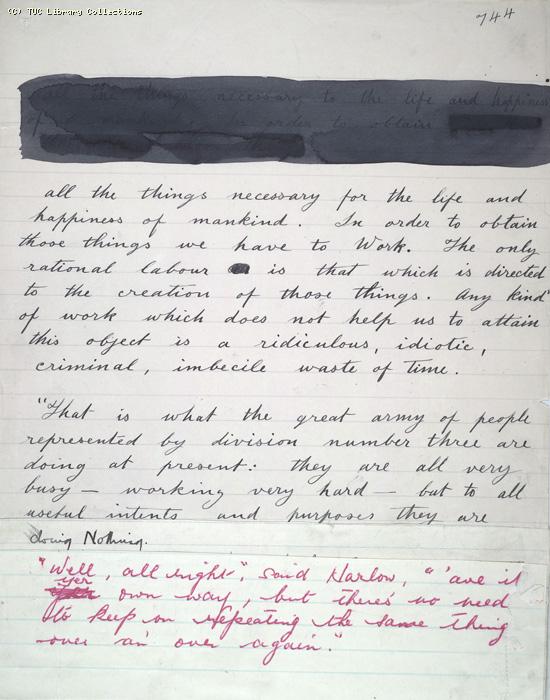 (C) TUC Library Collections
744
all the things necessary to the life and happiness
in order to obtain
all the things necessary for the life and
happiness of mankind. In order to obtain
those things we have to Work. The only
rational labour is that which is directed
to the creation of those things. Any kind
of work which does not help us to attain
this object is a ridiculous, idiotic,
criminal, imbecile waste of time.
"That is what the great army of people
represented by division number three are
doing at present: they are all very
busy — working very hard — but to all
useful intents and purposes they are
doing Nothing.
"Well, all right", said Harlow, "'ave it
yer own way, but there's no need
to keep on repeating the same thing
over an' over again."